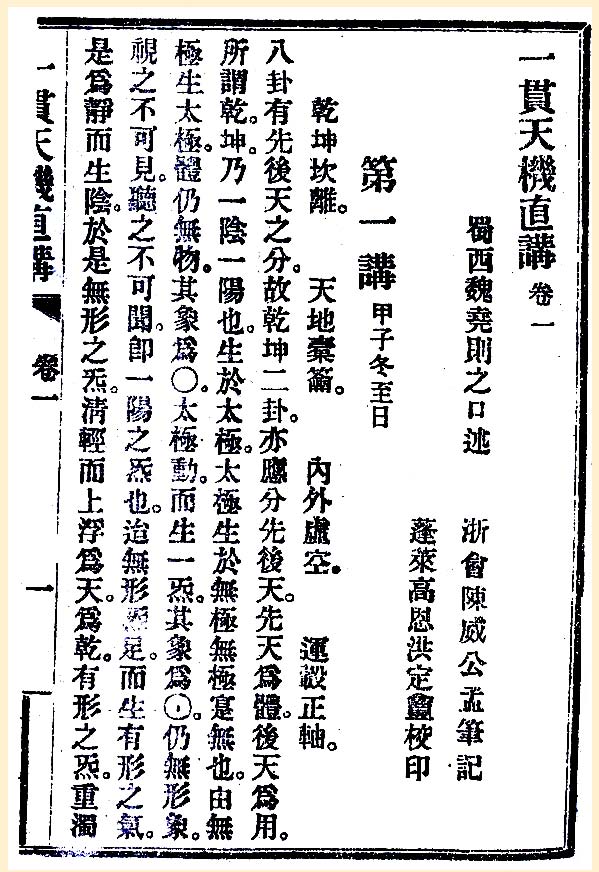 一貫天機直講 卷一
蜀西魏堯則之口述
浙會陳威公孟筆記
蓬萊高恩洪定盦校印
第一講 甲子冬至日
乾坤坎離。 天地橐籥。 內外虛空。 運轂正軸。
八卦有先後天之分。故乾坤二卦。亦應分先後天。先天爲體。後天爲用。
所謂乾。坤。乃一陰一陽也。生於太極。太極生於無極無極寔無也。由無
極生太極。體仍無物。其象爲〇。太極動。而生一炁。其象爲⊙。仍無形象。
視之不可見。聽之不可聞。卽一陽之炁也。迨無形炁足。而生有形之氣。
是爲靜而生陰。於是無形之炁。淸輕而上浮爲天。爲乾。有形之炁。重濁
一貫天機直講 卷一
一